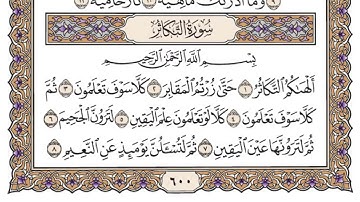 وَمَآ أَدْرَىٰكَ مَا هِيَهْ ١٠ نَارٌ حَامِيَةٌۢ ١١
سُورَةُ التَّكَاثُرِ
بِسْمِ ٱللَّهِ ٱلرَّحْمَٰنِ ٱلرَّحِيمِ
أَلْهَىٰكُمُ ٱلتَّكَاثُرُ ١ حَتَّىٰ زُرْتُمُ ٱلْمَقَابِرَ ٢ كَلَّا سَوْفَ تَعْلَمُونَ ٣ ثُمَّ
كَلَّا سَوْفَ تَعْلَمُونَ ٤ كَلَّا لَوْ تَعْلَمُونَ عِلْمَ ٱلْيَقِينِ ٥ لَتَرَوُنَّ ٱلْجَحِيمَ ٦
ثُمَّ لَتَرَوُنَّهَا عَيْنَ ٱلْيَقِينِ ٧ ثُمَّ لَتُسْـَٔلُنَّ يَوْمَئِذٍ عَنِ ٱلنَّعِيمِ ٨
٦٠٠